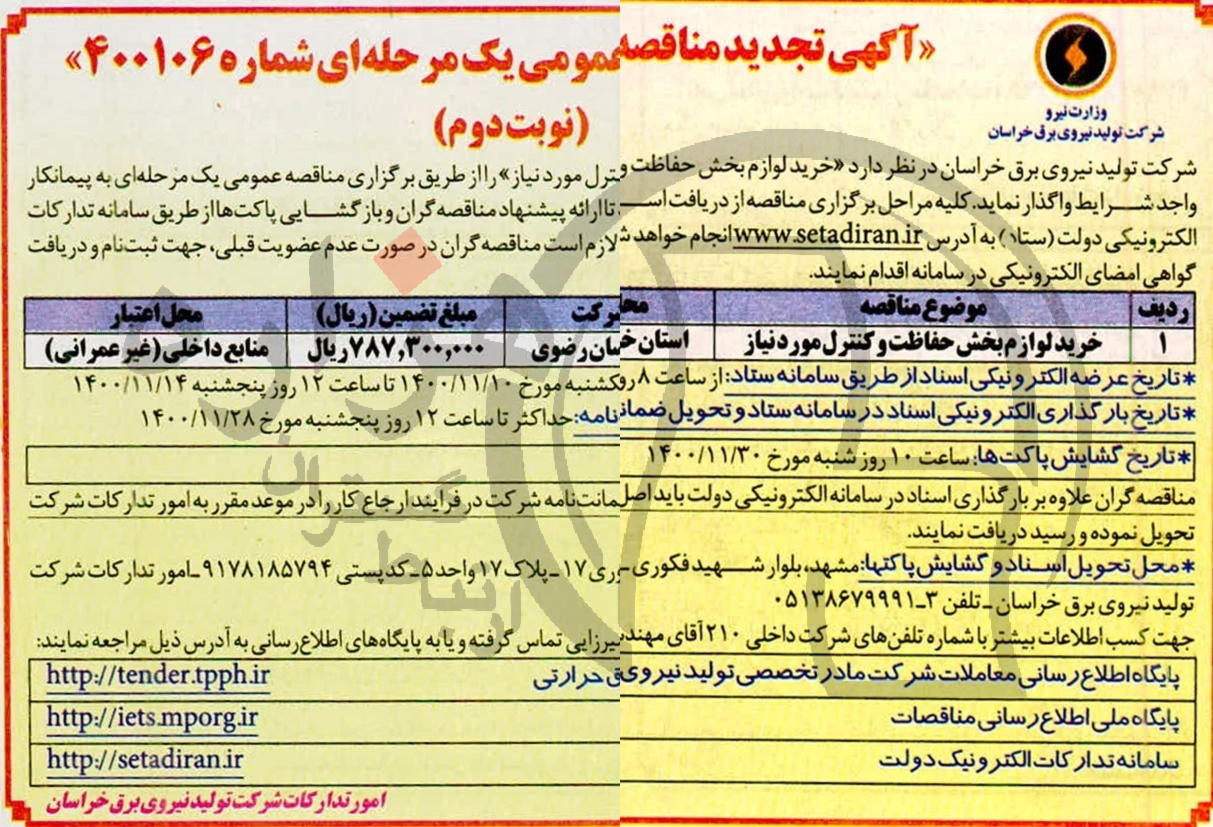 «آگهی تجدید مناقصه عمومی یک مرحله‌ای شماره ۴۰۰۱۰۶»
(نوبت دوم)
وزارت نیرو
شرکت تولید نیروی برق خراسان
شرکت تولید نیروی برق خراسان در نظر دارد «خرید لوازم بخش حفاظت و کنترل مورد نیاز» را از طریق برگزاری مناقصه عمومی یک مرحله‌ای به پیمانکار
واجد شرایط واگذار نماید. کلیه مراحل برگزاری مناقصه از دریافت اسـ تا ارائه پیشنهاد مناقصه گران و بازگشایی پاکت‌ها از طریق سامانه تدارکات
الکترونیکی دولت (ستاد) به آدرس www.setadiran.ir انجام خواهد ش لازم است مناقصه گران در صورت عدم عضویت قبلی، جهت ثبت‌نام و دریافت
گواهی امضای الکترونیکی در سامانه اقدام نمایند.
ردیف موضوع مناقصه محل شرکت مبلغ تضمین (ریال) محل اعتبار
۱ خرید لوازم بخش حفاظت و کنترل مورد نیاز استان خراسان رضوی ۷۸۷,۳۰۰,۰۰۰ ریال منابع داخلی (غیر عمرانی)
*تاریخ عرضه الکترونیکی اسناد از طریق سامانه ستاد: از ساعت ۸ روز یکشنبه مورخ ۱۴۰۰/۱۱/۱۰ تا ساعت ۱۲ روز پنجشنبه ۱۴۰۰/۱۱/۱۴
*تاریخ بارگذاری الکترونیکی اسناد در سامانه ستاد و تحویل ضمانتنامه: حداکثر تا ساعت ۱۲ روز پنجشنبه مورخ ۱۴۰۰/۱۱/۲۸
*تاریخ گشایش پاکت‌ها: ساعت ۱۰ روز شنبه مورخ ۱۴۰۰/۱۱/۳۰
مناقصه گران علاوه بر بارگذاری اسناد در سامانه الکترونیکی دولت باید اصل ضمانت‌نامه شرکت در فرایند ارجاع کار را در موعد مقرر به امور تدارکات شرکت
تحویل نموده و رسید دریافت نمایند.
*محل تحویل اسناد و گشایش پاکتها: مشهد، بلوار شهید فکوری - فکوری ۱۷ - پلاک ۱۷ واحد ۵ - کدپستی ۹۱۷۸۱۸۵۷۹۴ - امور تدارکات شرکت
تولید نیروی برق خراسان - تلفن ۳-۰۵۱۳۸۶۷۹۹۹۱
جهت کسب اطلاعات بیشتر با شماره تلفن‌های شرکت داخلی ۲۱۰ آقای مهندس میرزایی تماس گرفته و یا به پایگاه‌های اطلاع رسانی به آدرس ذیل مراجعه نمایند:
پایگاه اطلاع رسانی معاملات شرکت مادر تخصصی تولید نیروی برق حرارتی http://tender.tpph.ir
پایگاه ملی اطلاع رسانی مناقصات http://iets.mporg.ir
سامانه تدارکات الکترونیک دولت http://setadiran.ir
امور تدارکات شرکت تولید نیروی برق خراسان